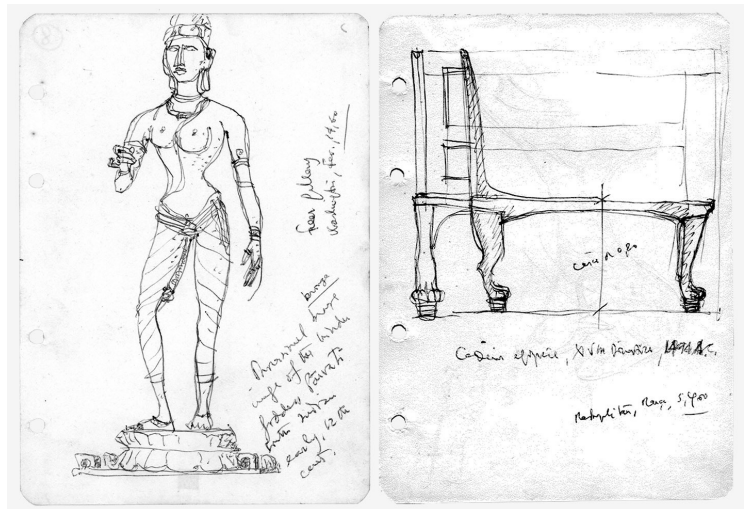 Freer Gallery
Washington, Fev., 14,60
bronze
Processional image
image of the hindu
goddess, Parvati
South indian
early, 12th
cent.
cerca de 0,80
Cadeira egípcia, XVIII Dinastia, A.C.
Metropolitan, 5,4,60